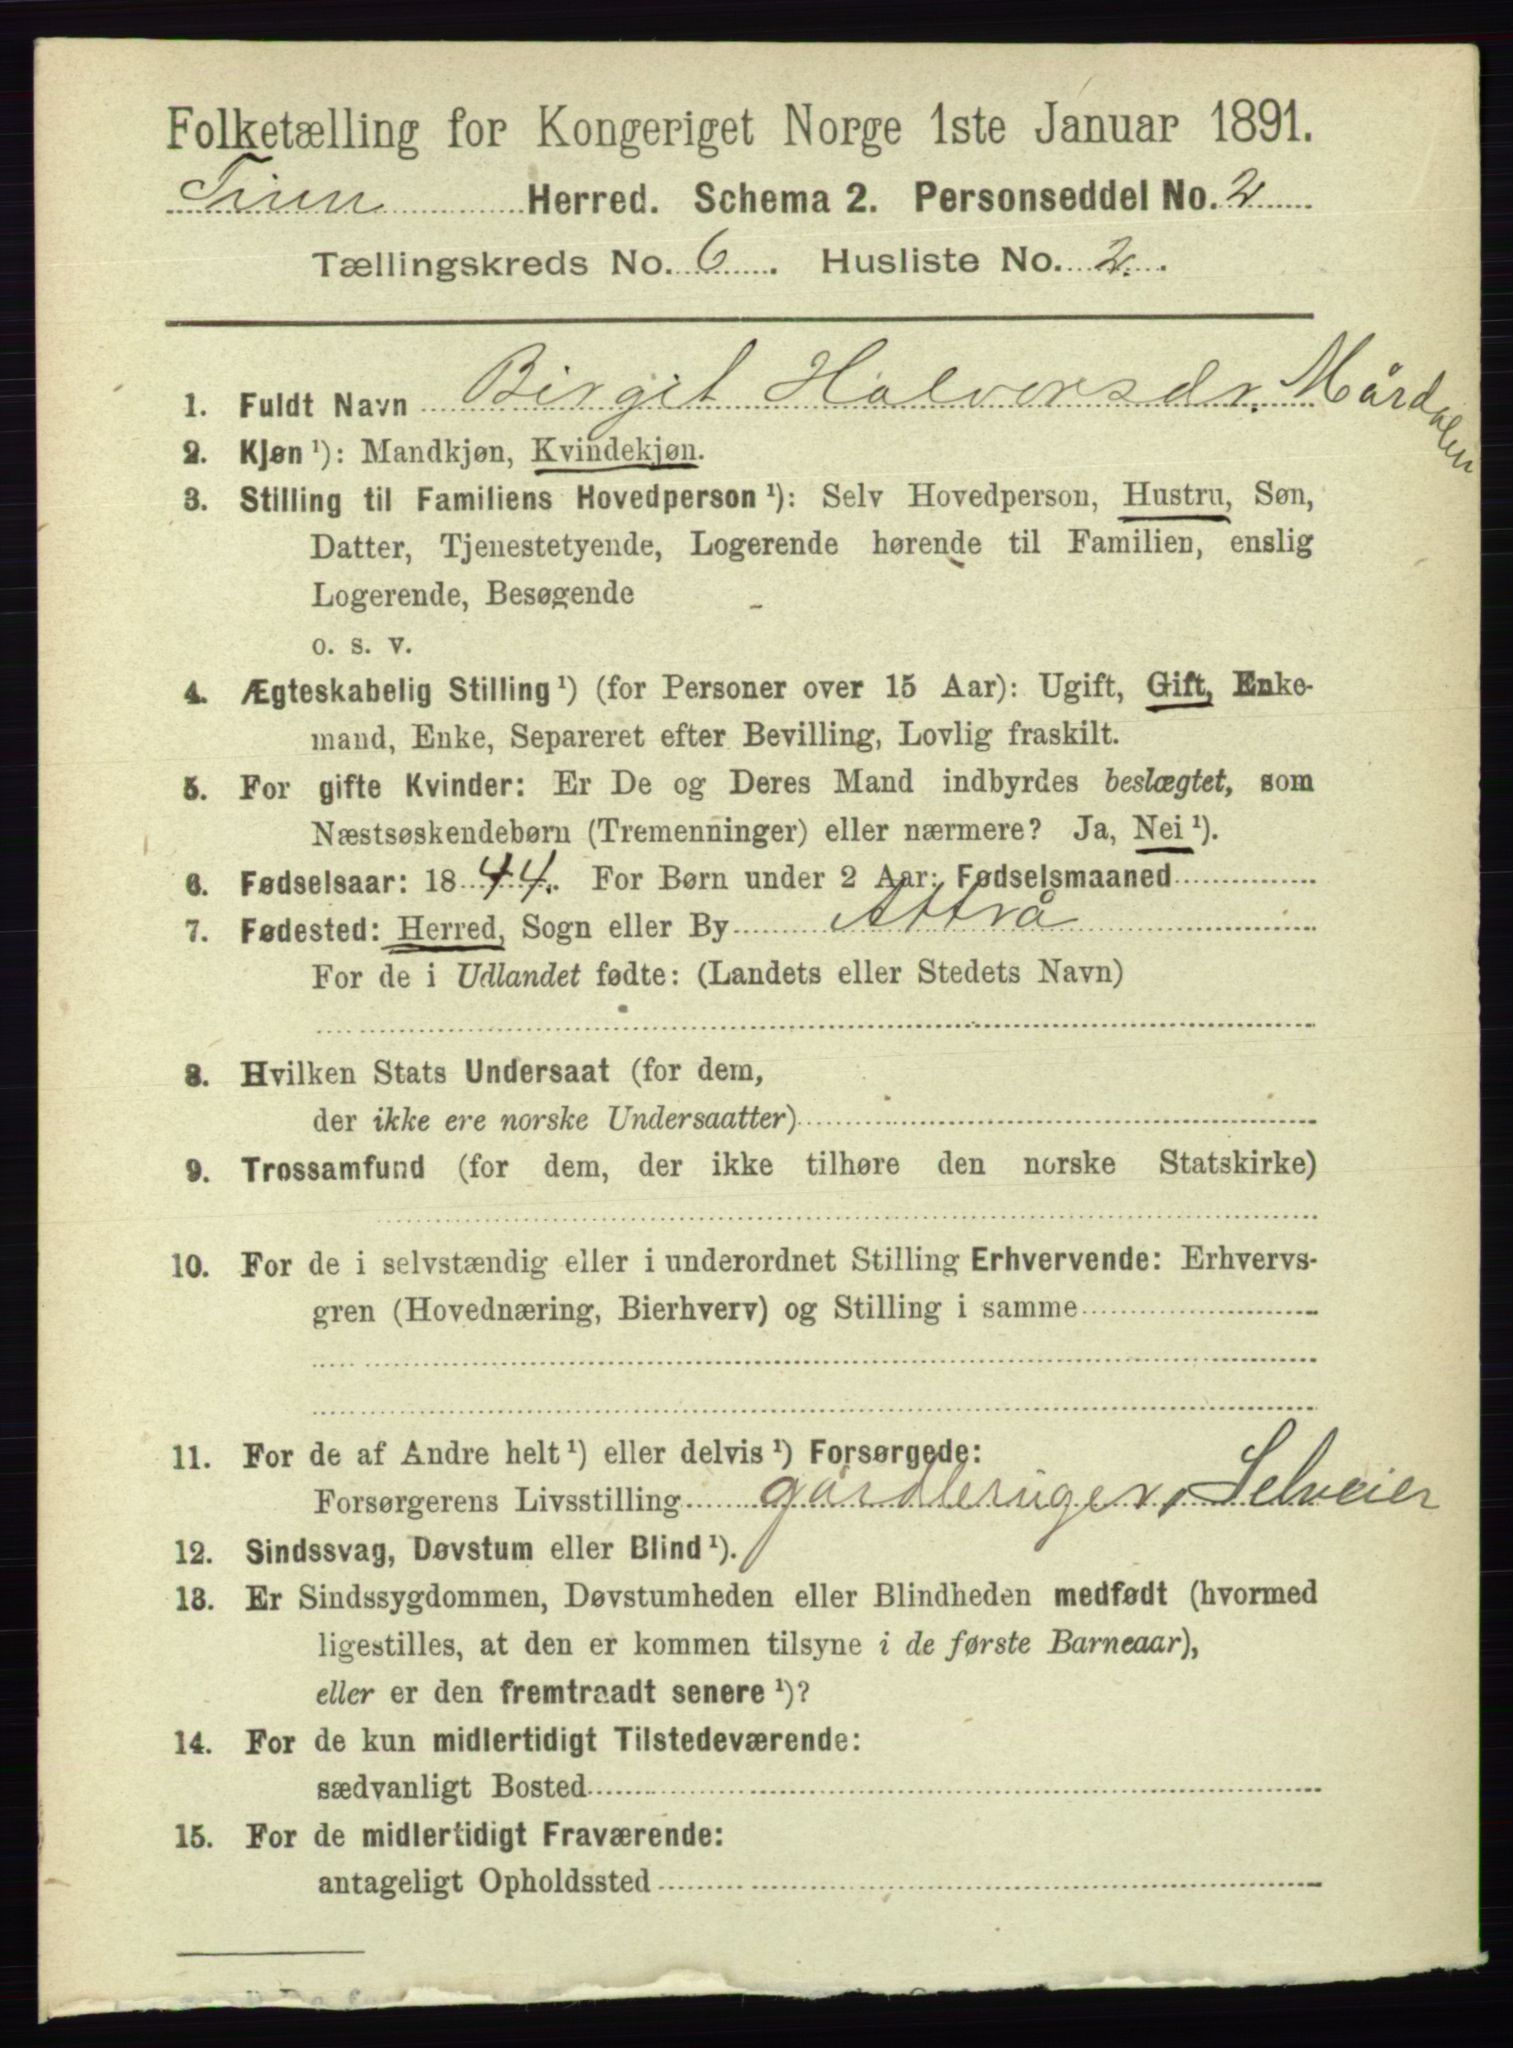 Folketælling for Kongeriget Norge 1ste Januar 1891.
Tinn Herred. Schema 2. Personseddel No. 2
Tællingskreds No. 6. Husliste No. 2.
1. Fuldt Navn Birgit Halvorsdr. Mårdalen
2. Kjøn ¹): Mandkjøn, Kvindekjøn.
3. Stilling til Familiens Hovedperson ¹): Selv Hovedperson, Hustru, Søn,
Datter, Tjenestetyende, Logerende hørende til Familien, enslig
Logerende, Besøgende
o. s. v.
4. Ægteskabelig Stilling ¹) (for Personer over 15 Aar): Ugift, Gift, Enke-
mand, Enke, Separeret efter Bevilling, Lovlig fraskilt.
5. For gifte Kvinder: Er De og Deres Mand indbyrdes beslægtet, som
Næstsøskendebørn (Tremenninger) eller nærmere? Ja, Nei ¹).
6. Fødselsaar: 1844. For Børn under 2 Aar: Fødselsmaaned
7. Fødested: Herred, Sogn eller By Attrå
For de i Udlandet fødte: (Landets eller Stedets Navn)
8. Hvilken Stats Undersaat (for dem,
der ikke ere norske Undersaatter)
9. Trossamfund (for dem, der ikke tilhøre den norske Statskirke)
10. For de i selvstændig eller i underordnet Stilling Erhvervende: Erhvervs-
gren (Hovednæring, Bierhverv) og Stilling i samme
11. For de af Andre helt ¹) eller delvis ¹) Forsørgede:
Forsørgerens Livsstilling gårdbruger, Selveier
12. Sindssvag, Døvstum eller Blind ¹).
13. Er Sindssygdommen, Døvstumheden eller Blindheden medfødt (hvormed
ligestilles, at den er kommen tilsyne i de første Barneaar),
eller er den fremtraadt senere ¹)?
14. For de kun midlertidigt Tilstedeværende:
sædvanligt Bosted
15. For de midlertidigt Fraværende:
antageligt Opholdssted